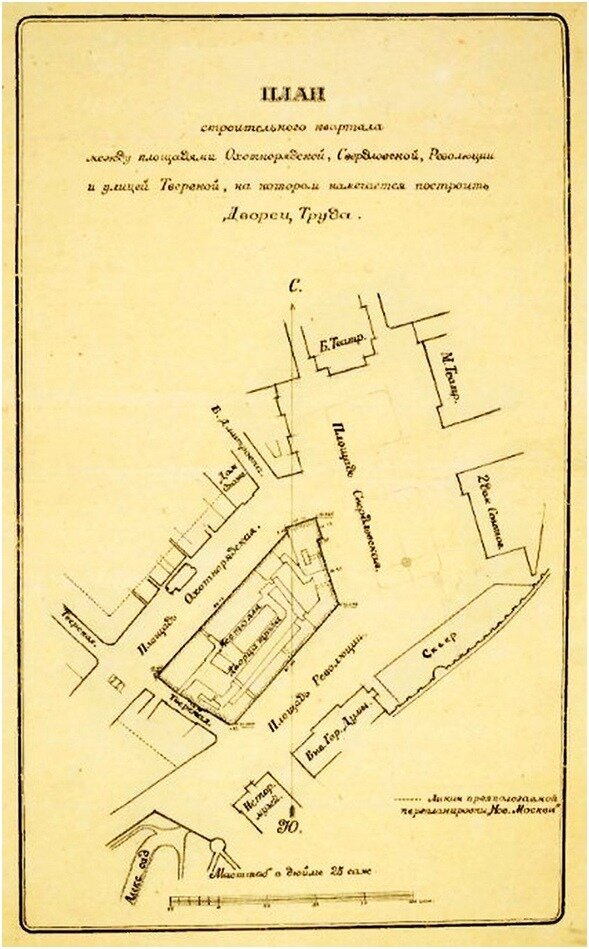 ПЛАН
строительного квартала
между площадями Охотнорядской, Свердловской, Революции
и улицей Тверской, на котором намечается построить
Дворец Труда.
С.
Б. Театр.
М. Театр.
Б. Дмитровка.
Площадь Свердловская.
Дом Союзов
2 Дом Советов.
Площадь Охотнорядская.
Тверская.
Дворца Труда
Сквер
Площадь Революции.
Тверская.
Быв. Гор. Думы.
Истор. музей.
Ю.
Линии предполагаемой
перепланировки „Нов. Москвы"
Алекс. сад
Масштаб в дюйме 25 саж.